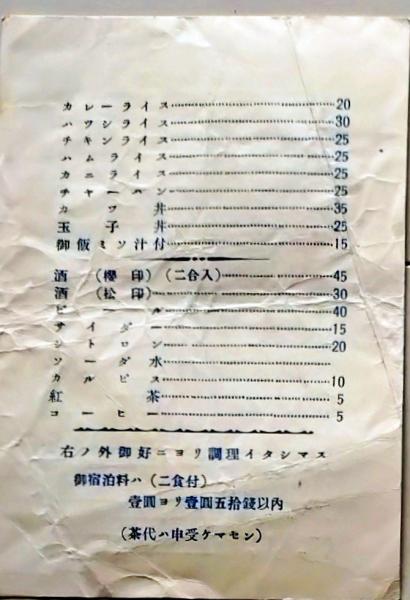 カレーライス 20
ハヤシライス 30
チキンライス 25
ハムライス 25
カニライス 25
チヤーハン 25
カツ丼 35
玉子丼 25
御飯ミソ汁付 15
酒(櫻印)(二合入) 45
酒(松印) 30
ビール 40
サイダー 15
シトロン 20
ソーダ水 5
カルピス 10
紅茶 5
コーヒー 5
右ノ外御好ニヨリ調理イタシマス
御宿泊料ハ(二食付)
壹圓ヨリ壹圓五拾錢以内
(茶代ハ申受ケマセン)